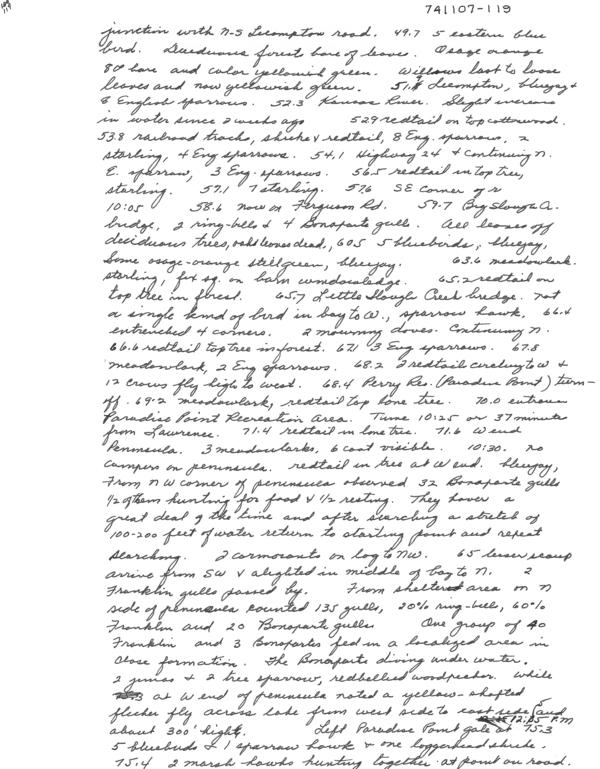 741107-119
junction with N-S Lecompton road. 49.7 5 eastern blue
bird. Deciduous forest bare of leaves. Osage orange
80% bare and color yellowish green. Willows last to loose
leaves and now yellowish green. 51.8 Lecompton, bluejay +
8 English sparrows. 52.3 Kansas River. Slight increase
in water since 2 weeks ago 52.9 redtail on top cottonwood.
53.8 railroad tracks, shrike & redtail, 8 Eng. sparrows, 2
starling, 4 Eng sparrows. 54.1 Highway 24 + continuing N.
E. sparrow, 3 Eng. sparrows. 56.5 redtail in top tree,
starling. 57.1 7 starling. 57.6 SE Corner of
10:05 58.6 now on Ferguson Rd. 59.7 Big Slough
bridge, 2 ring-bills & 4 Bonaparte gulls. All leaves off
deciduous trees, oaks leaves dead, 60.5 5 bluebirds, bluejay,
Some osage-orange still green, bluejay. 63.6 meadowlark.
starling, fox sq. on barn window ledge. 65.2 redtail on
top tree in forest. 65.7 Little Slough Creek bridge. not
a single kind of bird in bay to W., sparrow hawk. 66.4
entrenched 4 corners. 2 mourning doves. Continuing N.
66.6 redtail top tree in forest. 67.1 3 Eng sparrows. 67.8
meadowlark, 2 Eng sparrows. 68.2 2 redtail circling to W &
12 crows fly high to west. 68.4 Perry Res. (Paradise Point) turn-
off. 69.2 meadowlark, redtail top lone tree. 70.0 entrance
Paradise Point Recreation Area. Time 10:25 or 37 minute
from Lawrence. 71.4 redtail in lone tree. 71.6 W end
Peninsula. 3 meadowlarks, 6 coot visible. 10:30. no
campers on peninsula. redtail in tree at W end. bluejay,
From NW corner of peninsula observed 32 Bonaparte gulls
1/2 of them hunting for food & 1/2 resting. They hover a
great deal of the time and after searching a stretch of
100-200 feet of water return to starting point and repeat
searching. 2 cormorants on log to NW. 65 lesser scaup
arrive from SW & alighted in middle of bay to N. 2
Franklin gulls passed by. From sheltered area on N
side of peninsula counted 135 gulls, 20% ring-bill, 60%
Franklin and 20 Bonaparte gulls. One group of 40
Franklin and 3 Bonapartes fed in a localized area in
close formation. The Bonaparte diving under water.
2 juncos + 2 tree sparrow, redbellied woodpecker. While
at W end of peninsula noted a yellow-shafted
flicker fly across lake from west side to east side and
about 300' high. Left Paradise Point gate at 75.3 12:05 P.M
5 bluebirds & 1 sparrow hawk & one loggerhead shrike.
75.4 2 marsh hawks hunting together at point on road.